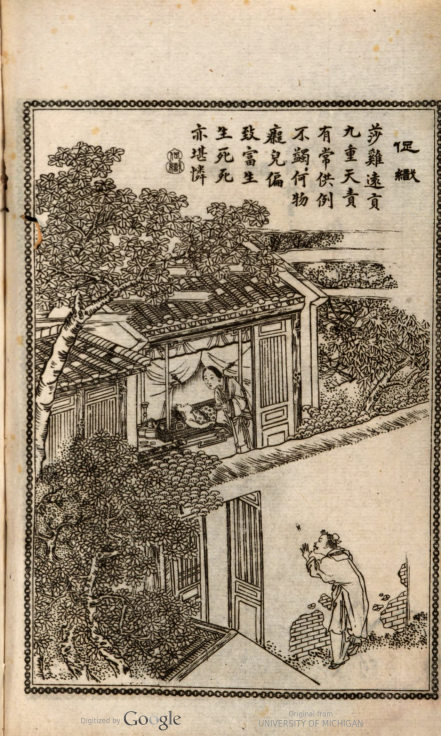 促織
莎雞遠貢
九重天責
有常供例
不蠲何物
癡兒偏
致富生
生死死
亦堪憐
促織
Digitized by Google
Original from
UNIVERSITY OF MICHIGAN